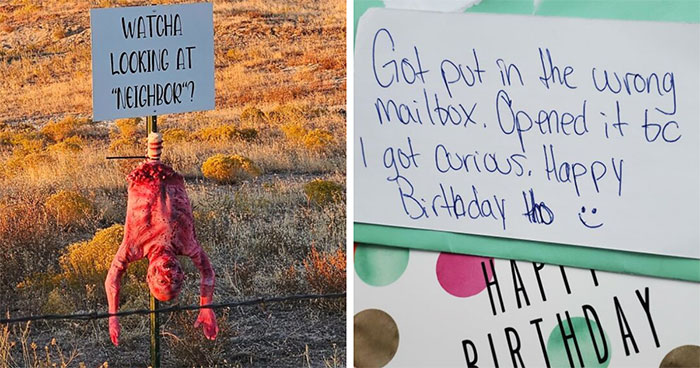 WATCHA
LOOKING AT
"NEIGHBOR"?
Got put in the wrong
mailbox. Opened it bc
I got curious. Happy
Birthday tho :)
HAPPY
BIRTHDAY